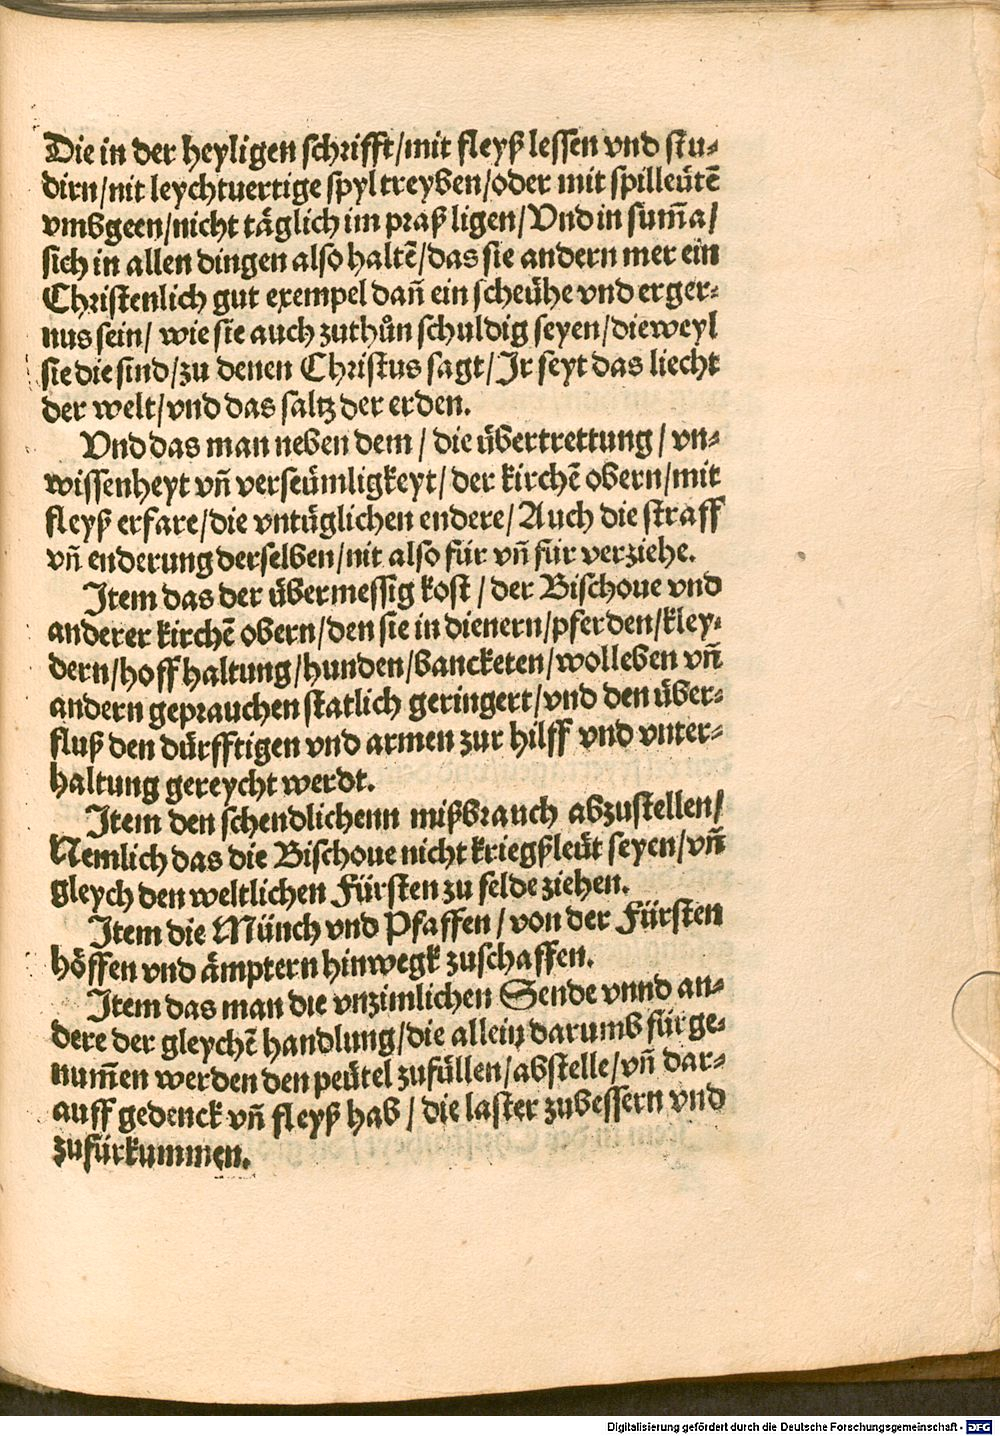 Die in der heyligen schrifft/mit fleyß lessen vnd stu-
dirn/nit leychtuertige spyl treyben/oder mit spilleütē
vmbgeen/nicht täglich im praß ligen/Vnd in sum̄a/
sich in allen dingen also haltē/das sie andern mer ein
Christenlich gut exempel dan̄ ein scheühe vnd erger-
nus sein/ wie sie auch zuthůn schuldig seyen/dieweyl
sie die sind/zu denen Christus sagt/Ir seyt das liecht
der welt/vnd das saltz der erden.
Vnd das man neben dem / die übertrettung / vn-
wissenheyt vn̄ verseümligkeyt/der kirchē obern/mit
fleyß erfare/die vntüglichen endere/Auch die straff
vn̄ enderung derselben/nit also für vn̄ für verziehe.
Item das der übermessig kost / der Bischoue vnd
anderer kirchē obern/den sie in dienern/pferden/kley-
dern/hoffhaltung/hunden/bancketen/wolleben vn̄
andern geprauchen statlich geringert/vnd den über-
fluß den dürfftigen vnd armen zur hilff vnd vnter-
haltung gereycht werdt.
Item den schendlichenn mißbrauch abzustellen/
Nemlich das die Bischoue nicht kriegßleüt seyen/vn̄
gleych den weltlichen Fürsten zu felde ziehen.
Item die Münch vnd Pfaffen / von der Fürsten
höffen vnd ämptern hinwegk zuschaffen.
Item das man die vnzimlichen Sende vnnd an-
dere der gleychē handlung/die allein darumb fürge-
num̄en werden den peütel zufüllen/abstelle/vn̄ dar-
auff gedenck vn̄ fleyß hab / die laster zubessern vnd
zufürkummen.
Digitalisierung gefördert durch die Deutsche Forschungsgemeinschaft - DFG